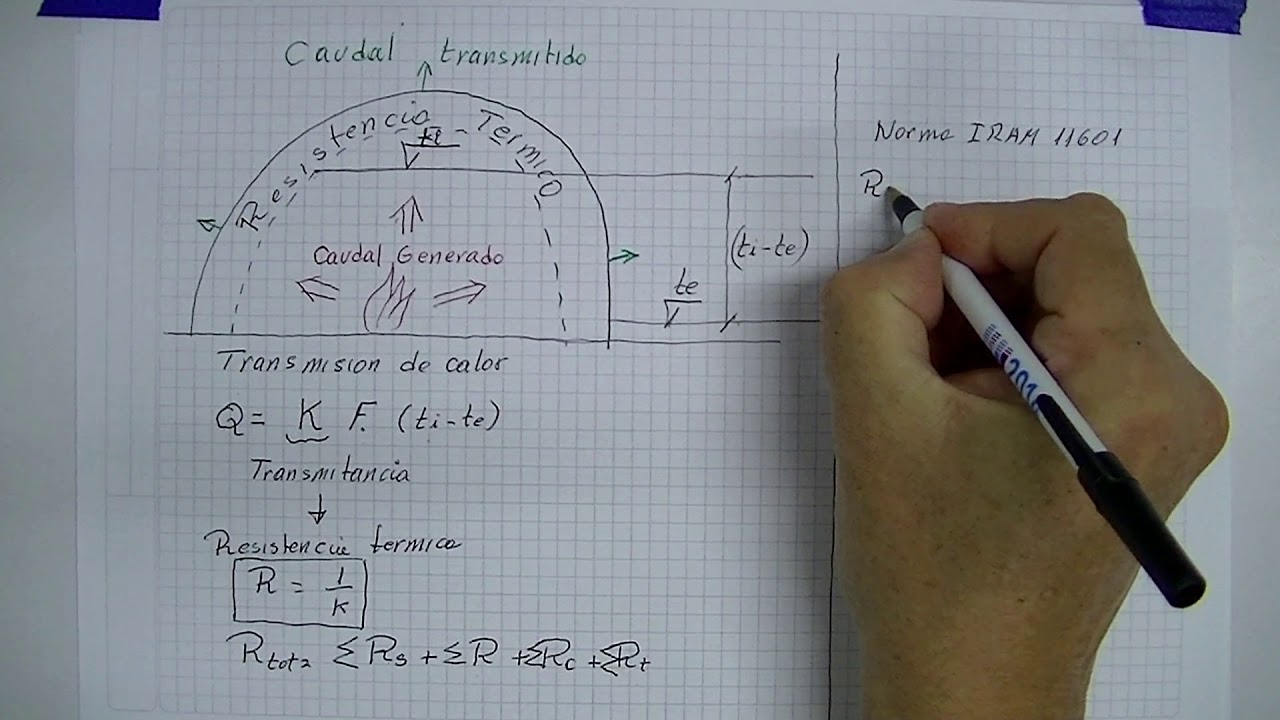 Caudal transmitido
Resistencia Termica
ti
Caudal Generado
(ti-te)
te
Transmision de calor
Q= K F. (ti-te)
Transmitancia
Resistencia termica
R = 1/K
Rtot= ΣRs + ΣR + ΣRc + ΣRt
Norma IRAM 11601
R
201